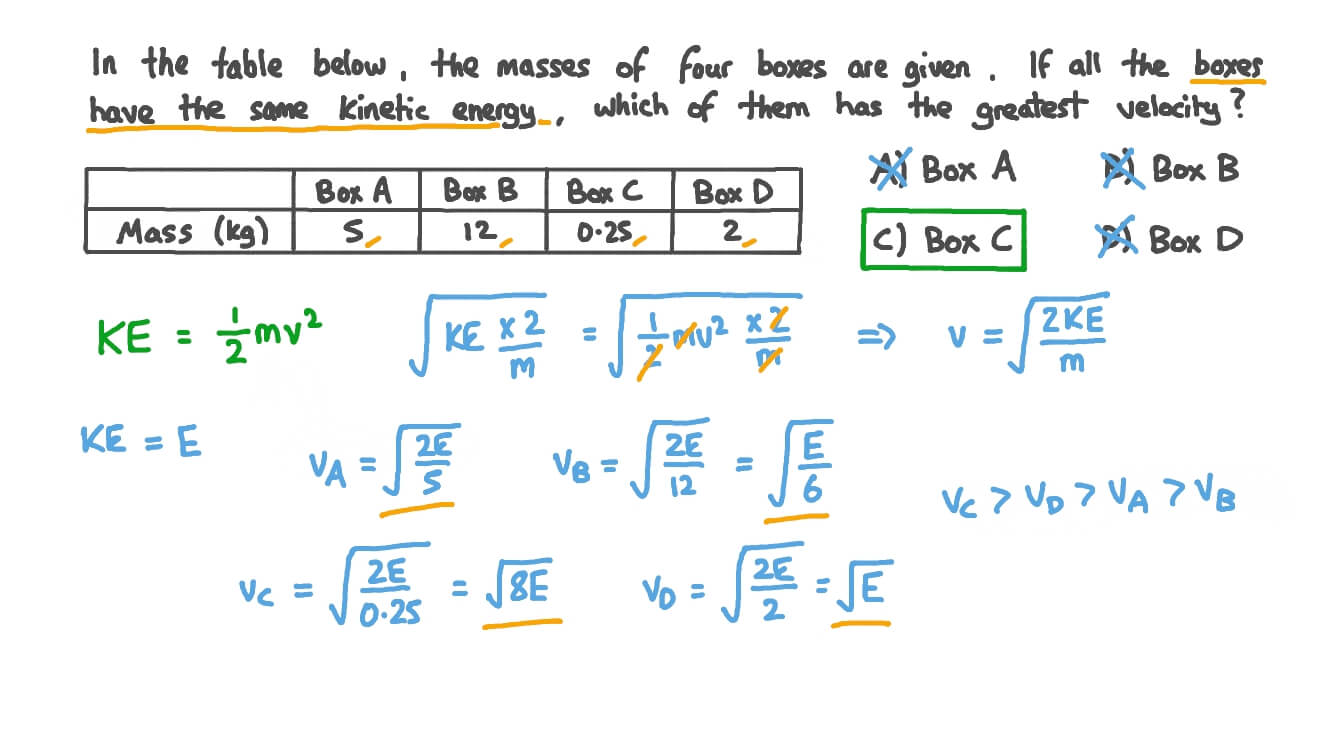 In the table below, the masses of four boxes are given. If all the boxes
have the same kinetic energy, which of them has the greatest velocity?
Box A Box B Box C Box D
Mass (kg) 5 12 0.25 2
A) Box A B) Box B
C) Box C D) Box D
KE = 1/2 mv² √(KE × 2/m) = √(1/2 mv² × 2/m) => v = √(2KE/m)
KE = E v_A = √(2E/5) v_B = √(2E/12) = √(E/6)
v_C > v_D > v_A > v_B
v_C = √(2E/0.25) = √8E v_D = √(2E/2) = √E